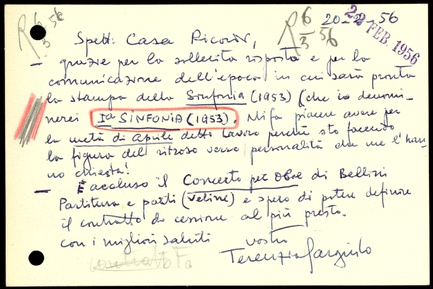 R 6/3 56
R 6/3 56
20-2-56
22 FEB 1956
Spett. Casa Ricordi,
grazie per la sollecita risposta e per la
comunicazione dell'epoca in cui sarà pronta
la stampa della Sinfonia (1953) (che io denomi-
nerei Iª SINFONIA (1953). Mi fa piacere avere per
la metà di aprile detto lavoro perchè sto facendo
la figura del ritroso verso personalità che me l'han-
no chiesta!
È accluso il Concerto per Oboe di Bellini
Partitura e parti (veline) e spero di poter definire
il contratto di cessione al più presto.
con i migliori saluti
vostro
Terenzio Gargiulo